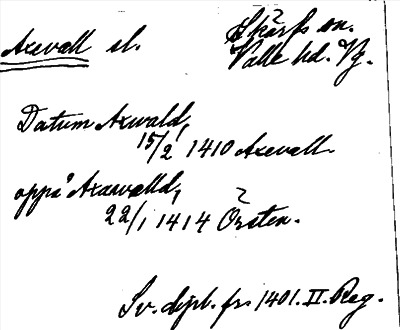 Axevall sl.
Skärfs sn.
Valle hd. Vg.
Datum Axwald,
15/2 1410 Axevall.
oppa Axawalld,
22/1 1414 Örsten.
Sv. dipl. fr. 1401. II. Reg.